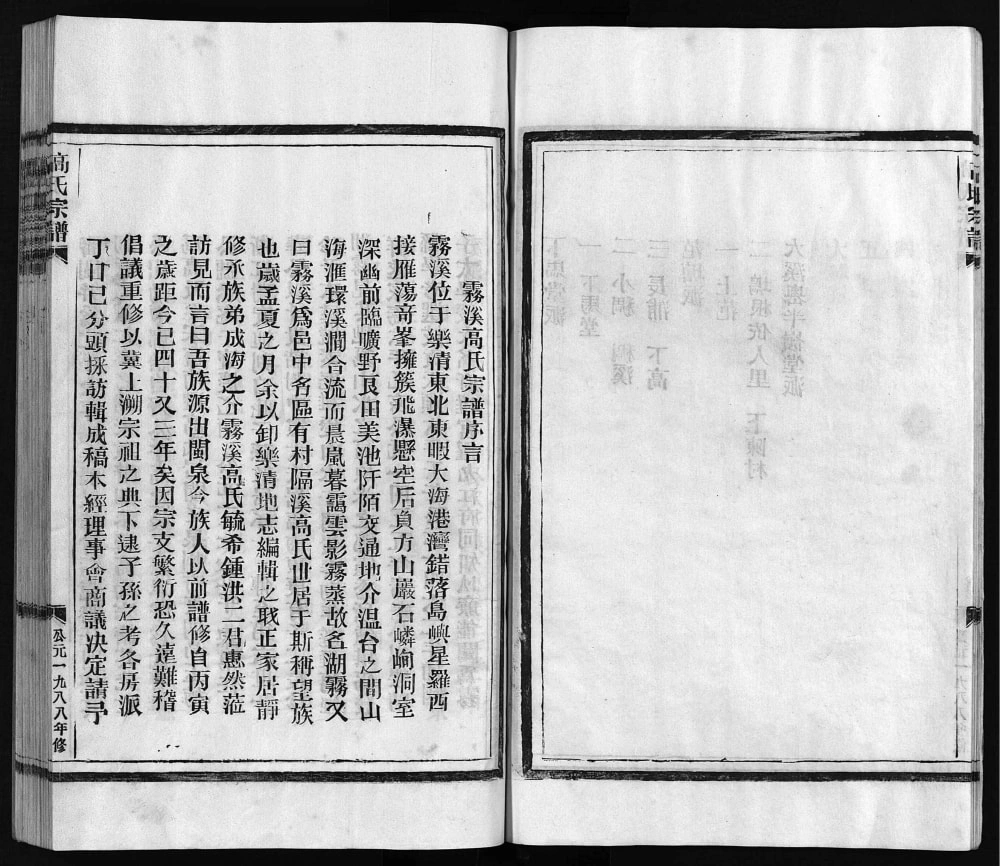 霧溪高氏宗譜序言
霧溪位于樂清東北東暇大海港灣錯落島嶼星羅西
接雁蕩奇峯擁簇飛瀑懸空后負方山巖石嶙峋洞室
深幽前臨曠野良田美池阡陌交通地介温台之間山
海滙環溪澗合流而晨嵐暮靄雲影霧蒸故名湖霧又
曰霧溪爲邑中名區有村隔溪高氏世居于斯稱望族
也歲孟夏之月余以卸樂清地志編輯之職正家居靜
修承族弟成海之介霧溪高氏毓希鍾洪二君惠然蒞
訪見而言曰吾族源出閩泉今族人以前譜修自丙寅
之歲距今已四十又三年矣因宗支繁衍恐久遠難稽
倡議重修以冀上溯宗祖之典下逮子孫之考各房派
丁口已分頭採訪輯成稿本經理事會商議决定請予
高氏宗譜
公元一九八八年修